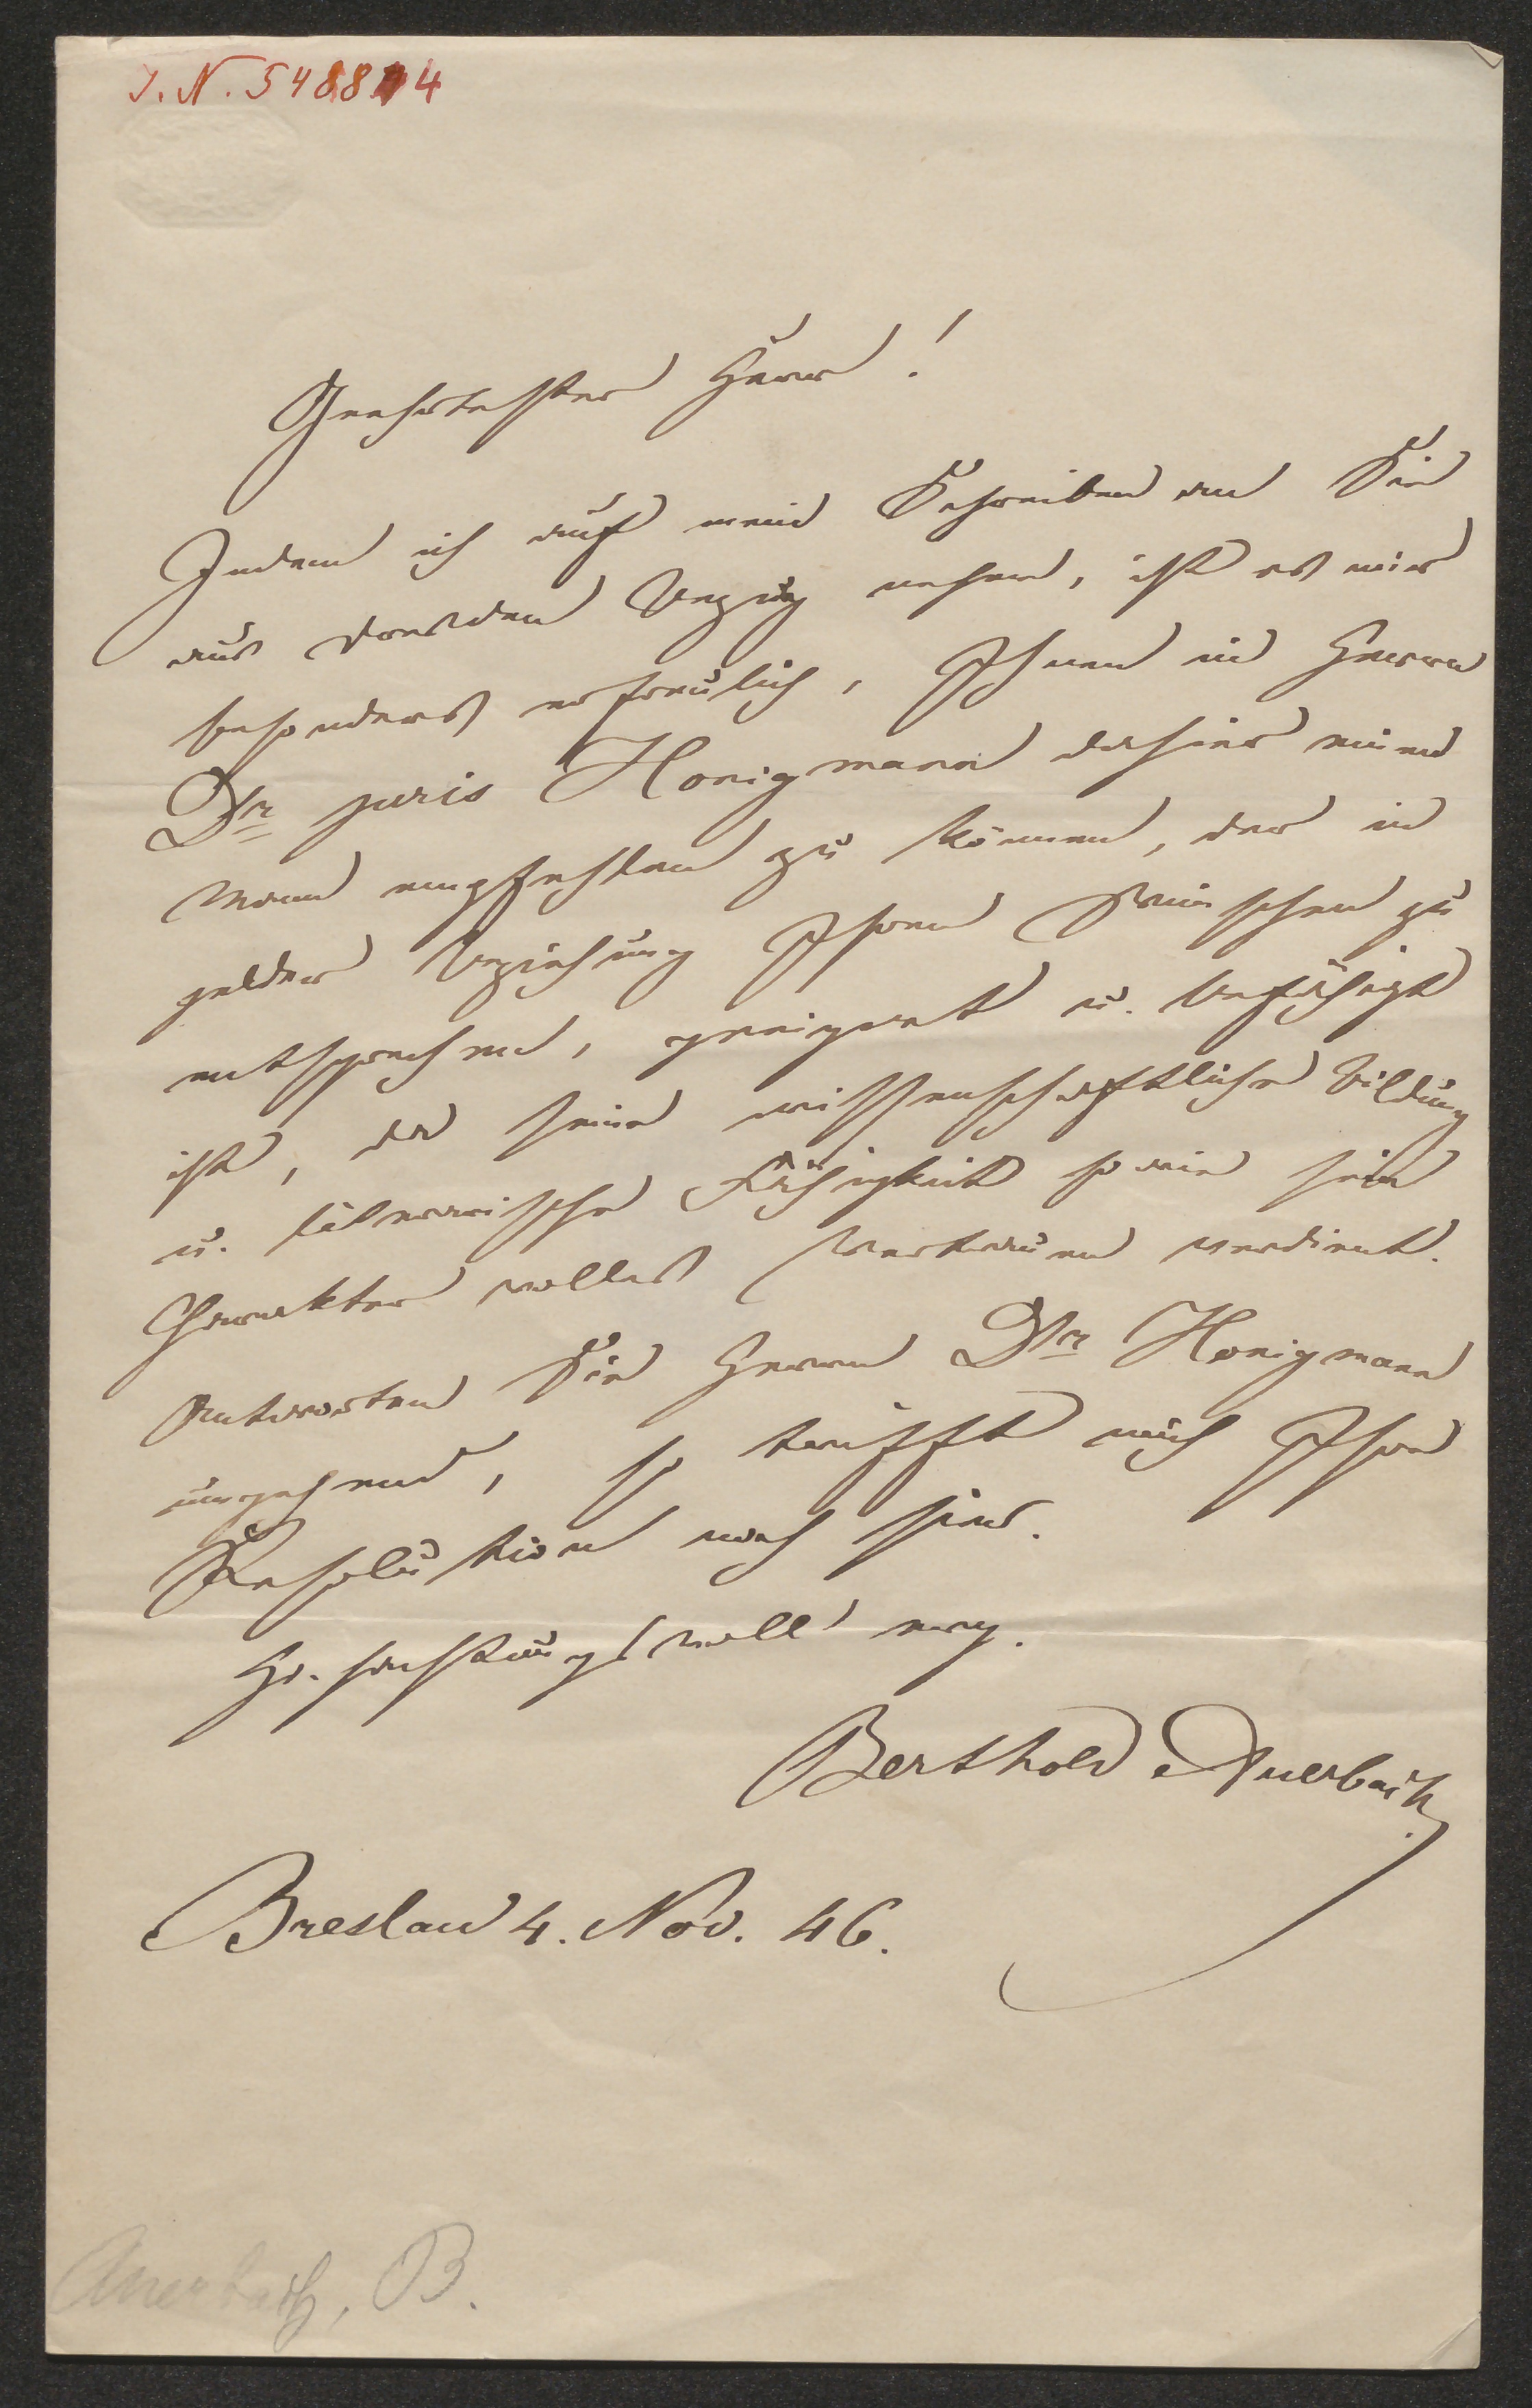 I. N. 548814
Geehrtester Herr!
Indem ich auf mein Schreiben an Sie
aus Dresden Bezug nehme, ist es mir
besonders erfreulich, Ihnen in Herrn
Dr juris Honigmann dahier einen
Mann empfehlen zu können, der in
jeder Beziehung Ihren Wünschen zu
entsprechen, geeignet u. befähigt
ist, da seine wissenschaftliche Bildung
u. literarische Fähigkeit so wie sein
Charakter volles Vertrauen verdient.
Antworten Sie Herrn Dr Honigmann
umgehend, so trifft mich Ihre
Resolution noch hier.
Hochachtungsvoll erg.
Berthold Auerbach
Breslau 4. Nov. 46.
Auerbach, B.